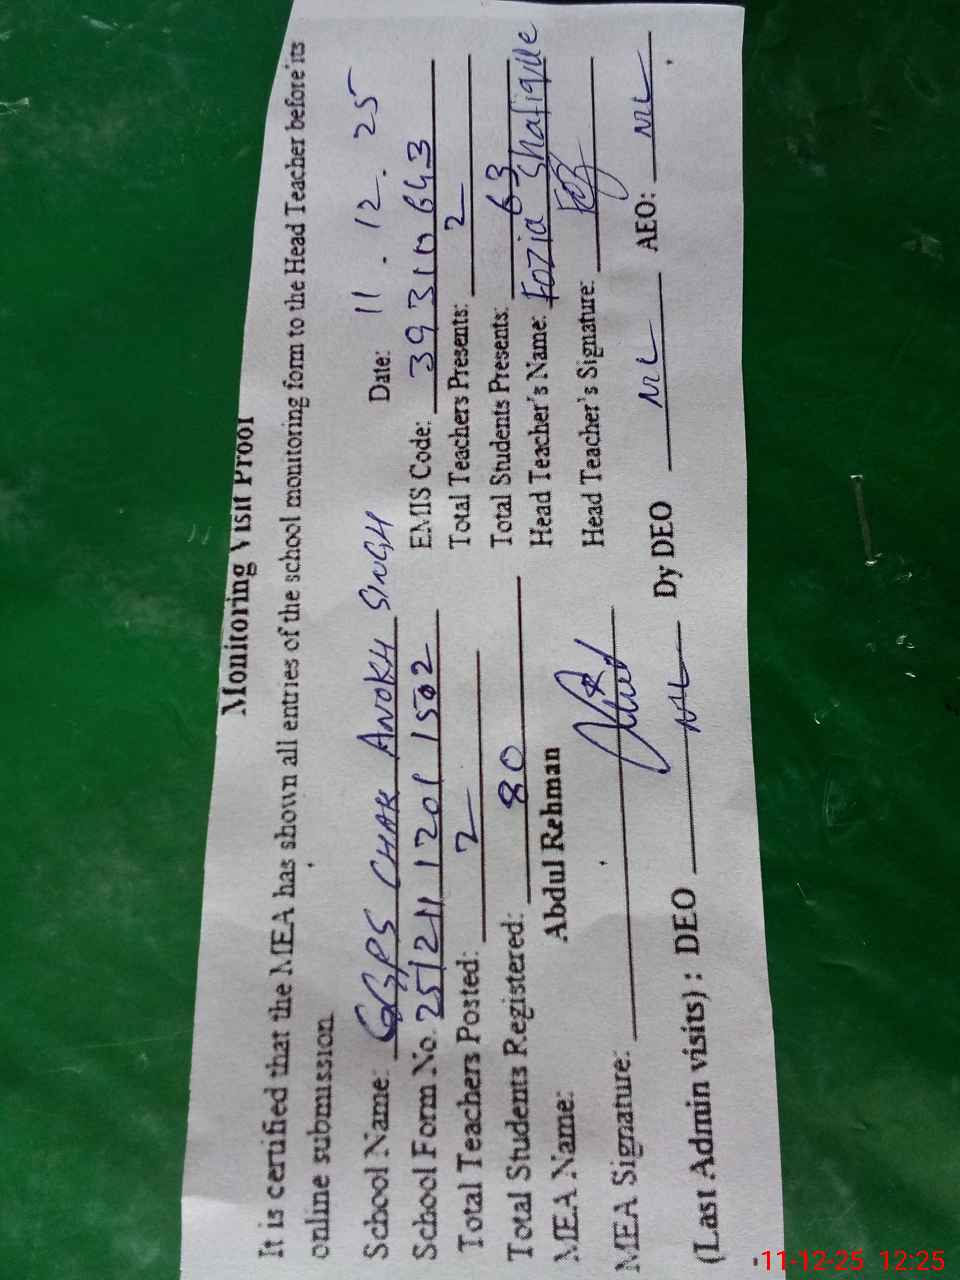 Monitoring Visit Proof
It is certified that the MEA has shown all entries of the school monitoring form to the Head Teacher before its
online submission
School Name: GGPS CHAK ANOKH SINGH Date: 11.12.25
School Form No. 25121112011502 EMIS Code: 39310643
Total Teachers Posted: 2 Total Teachers Presents: 2
Total Students Registered: 80 Total Students Presents: 63
MEA Name: Abdul Rehman Head Teacher's Name: Fozia Shafiqule
MEA Signature: Head Teacher's Signature:
(Last Admin visits) : DEO NIL Dy DEO NIL AEO: NIL
11-12-25 12:25